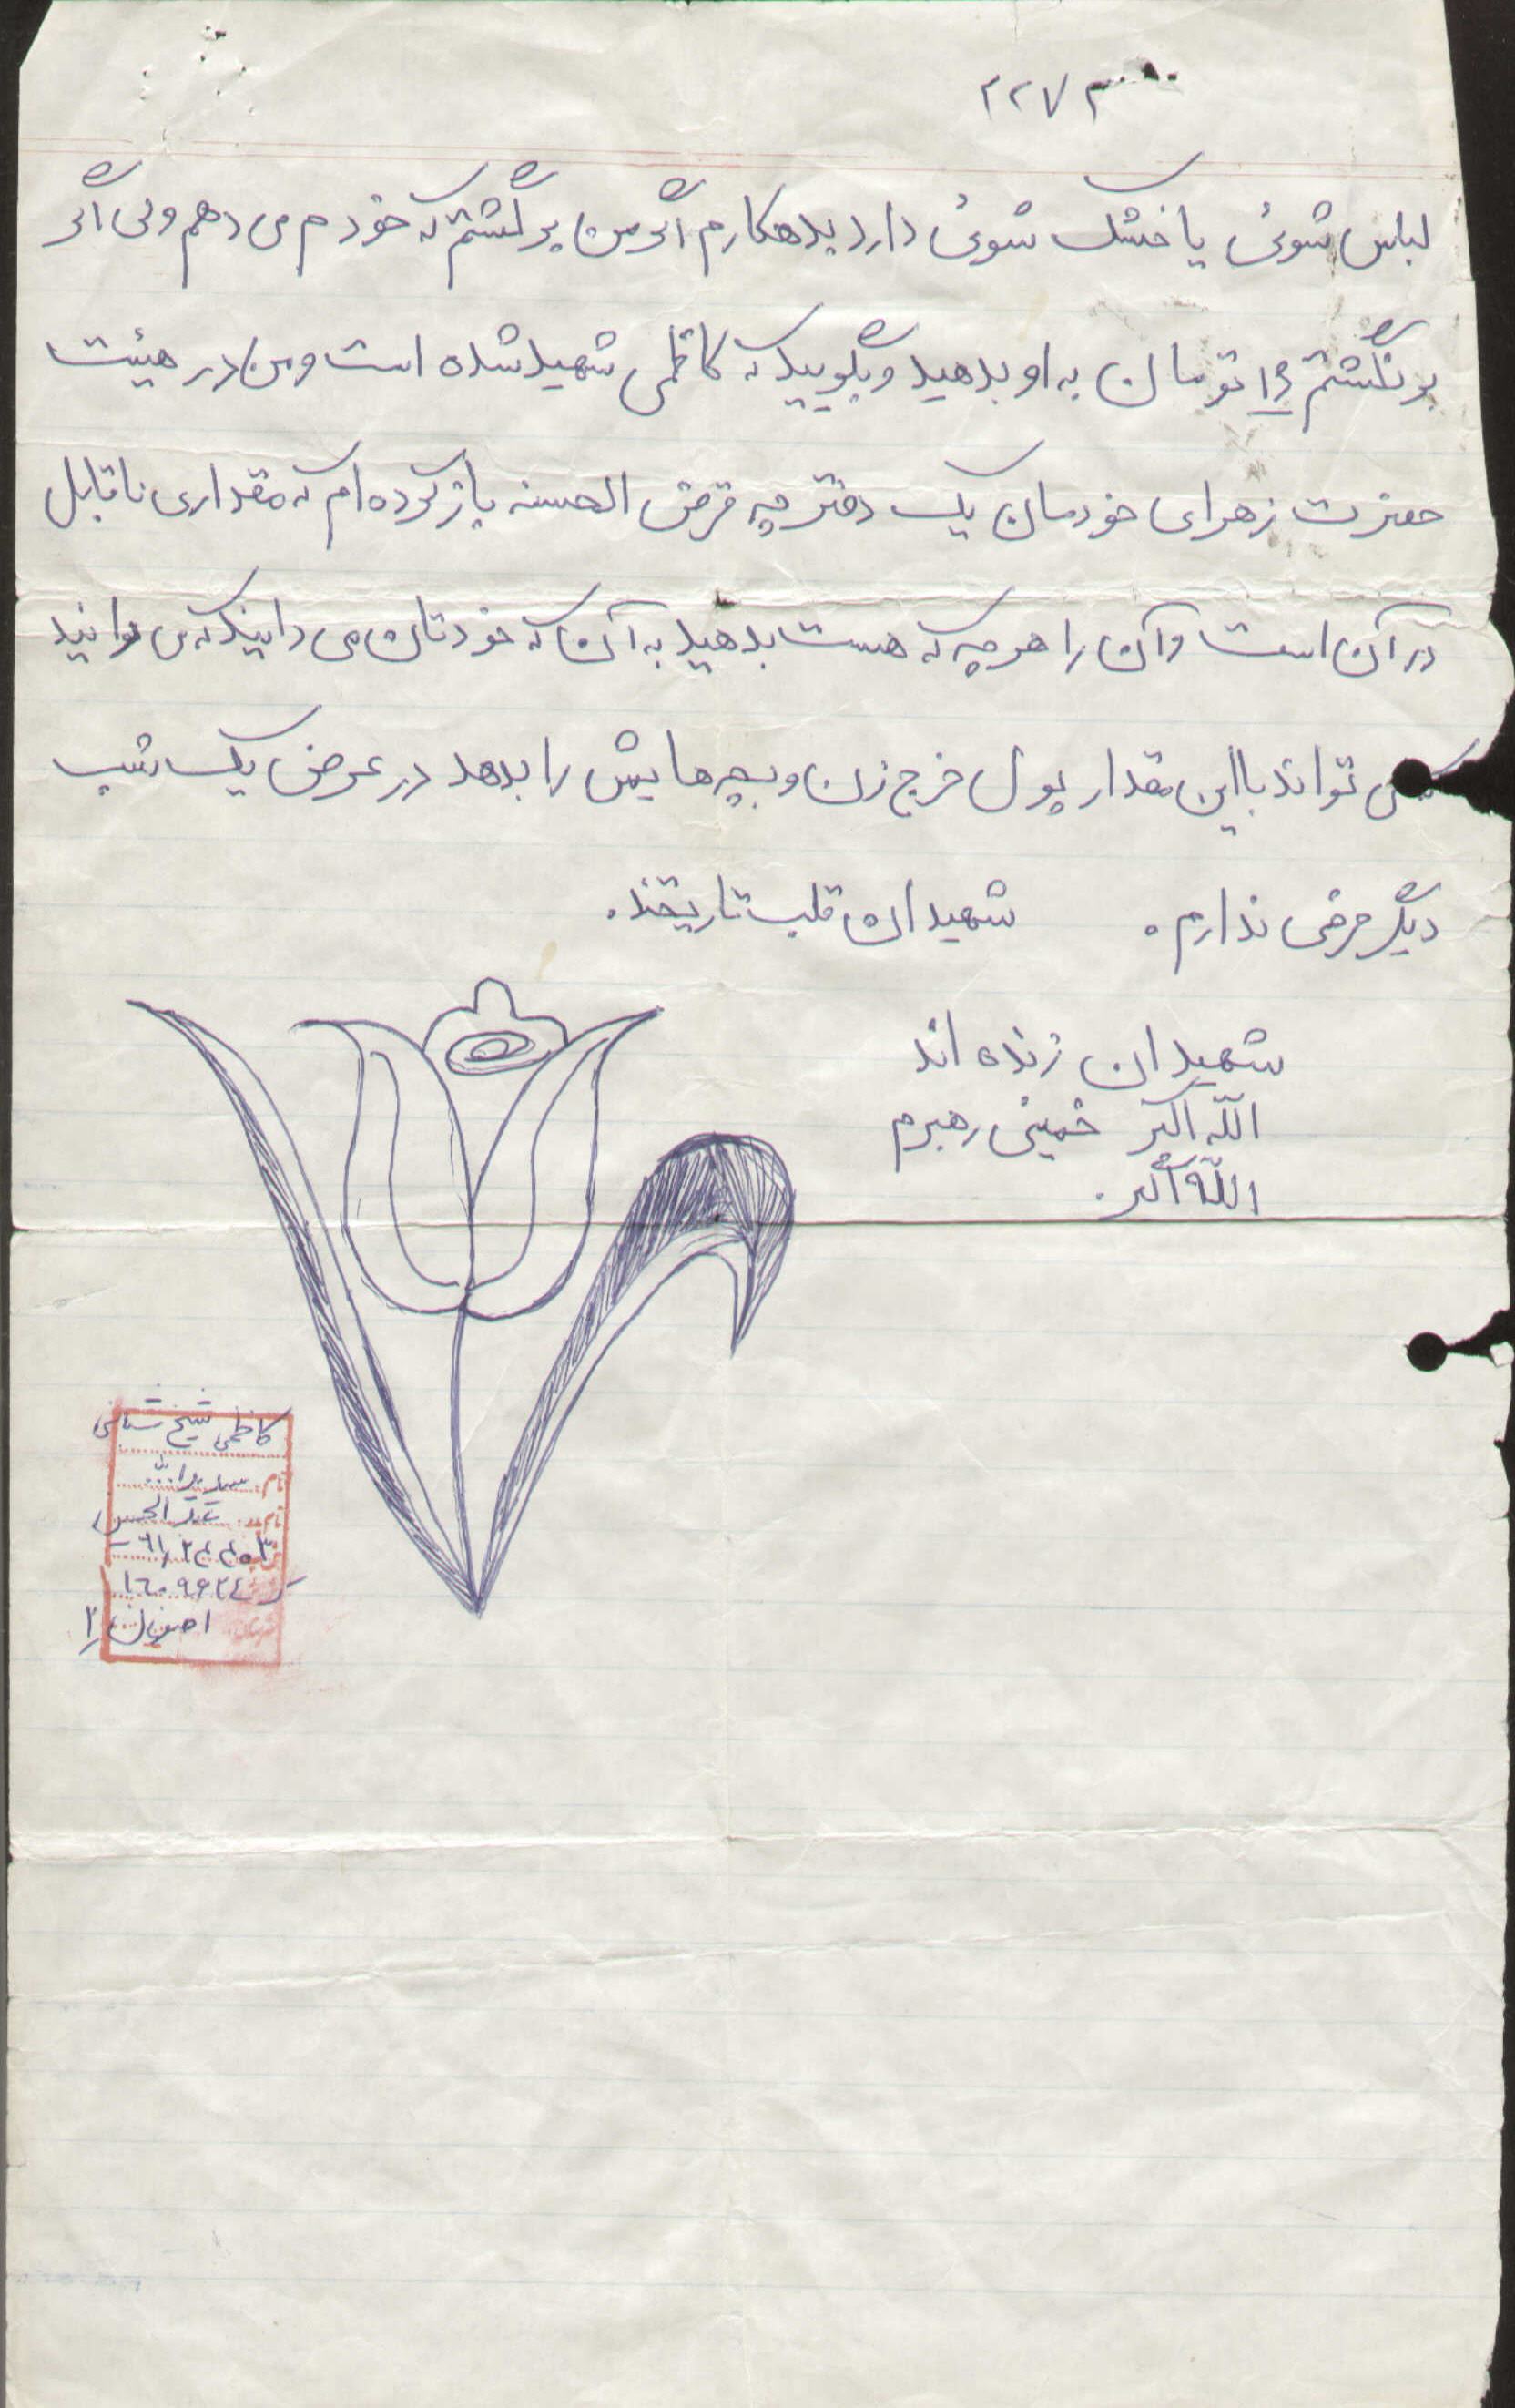 ۲۲۷۳
لباس شوئی یا خشک شوئی دارد بدهکارم اگر من برگشتم که خودم می دهم ولی اگر
برنگشتم تومان به او بدهید و بگویید که کاظمی شهید شده است و من در هیئت
حضرت زهرای خودمان یک دفترچه قرض الحسنه باز کرده ام که مقداری ناقابل
در آن است و آن را هرچه که هست بدهید به آن که خودتان می دانید که
نمی تواند با این مقدار پول خرج زن و بچه هایش را بدهد در عرض یک شب
دیگر عرضی ندارم. شهیدان قلب تاریخند.
شهیدان زنده اند
اللّه اکبر خمینی رهبرم
اللّه اکبر.
کاظمی شیخ شبانی
نام: سید
نام پدر:
اصفهان